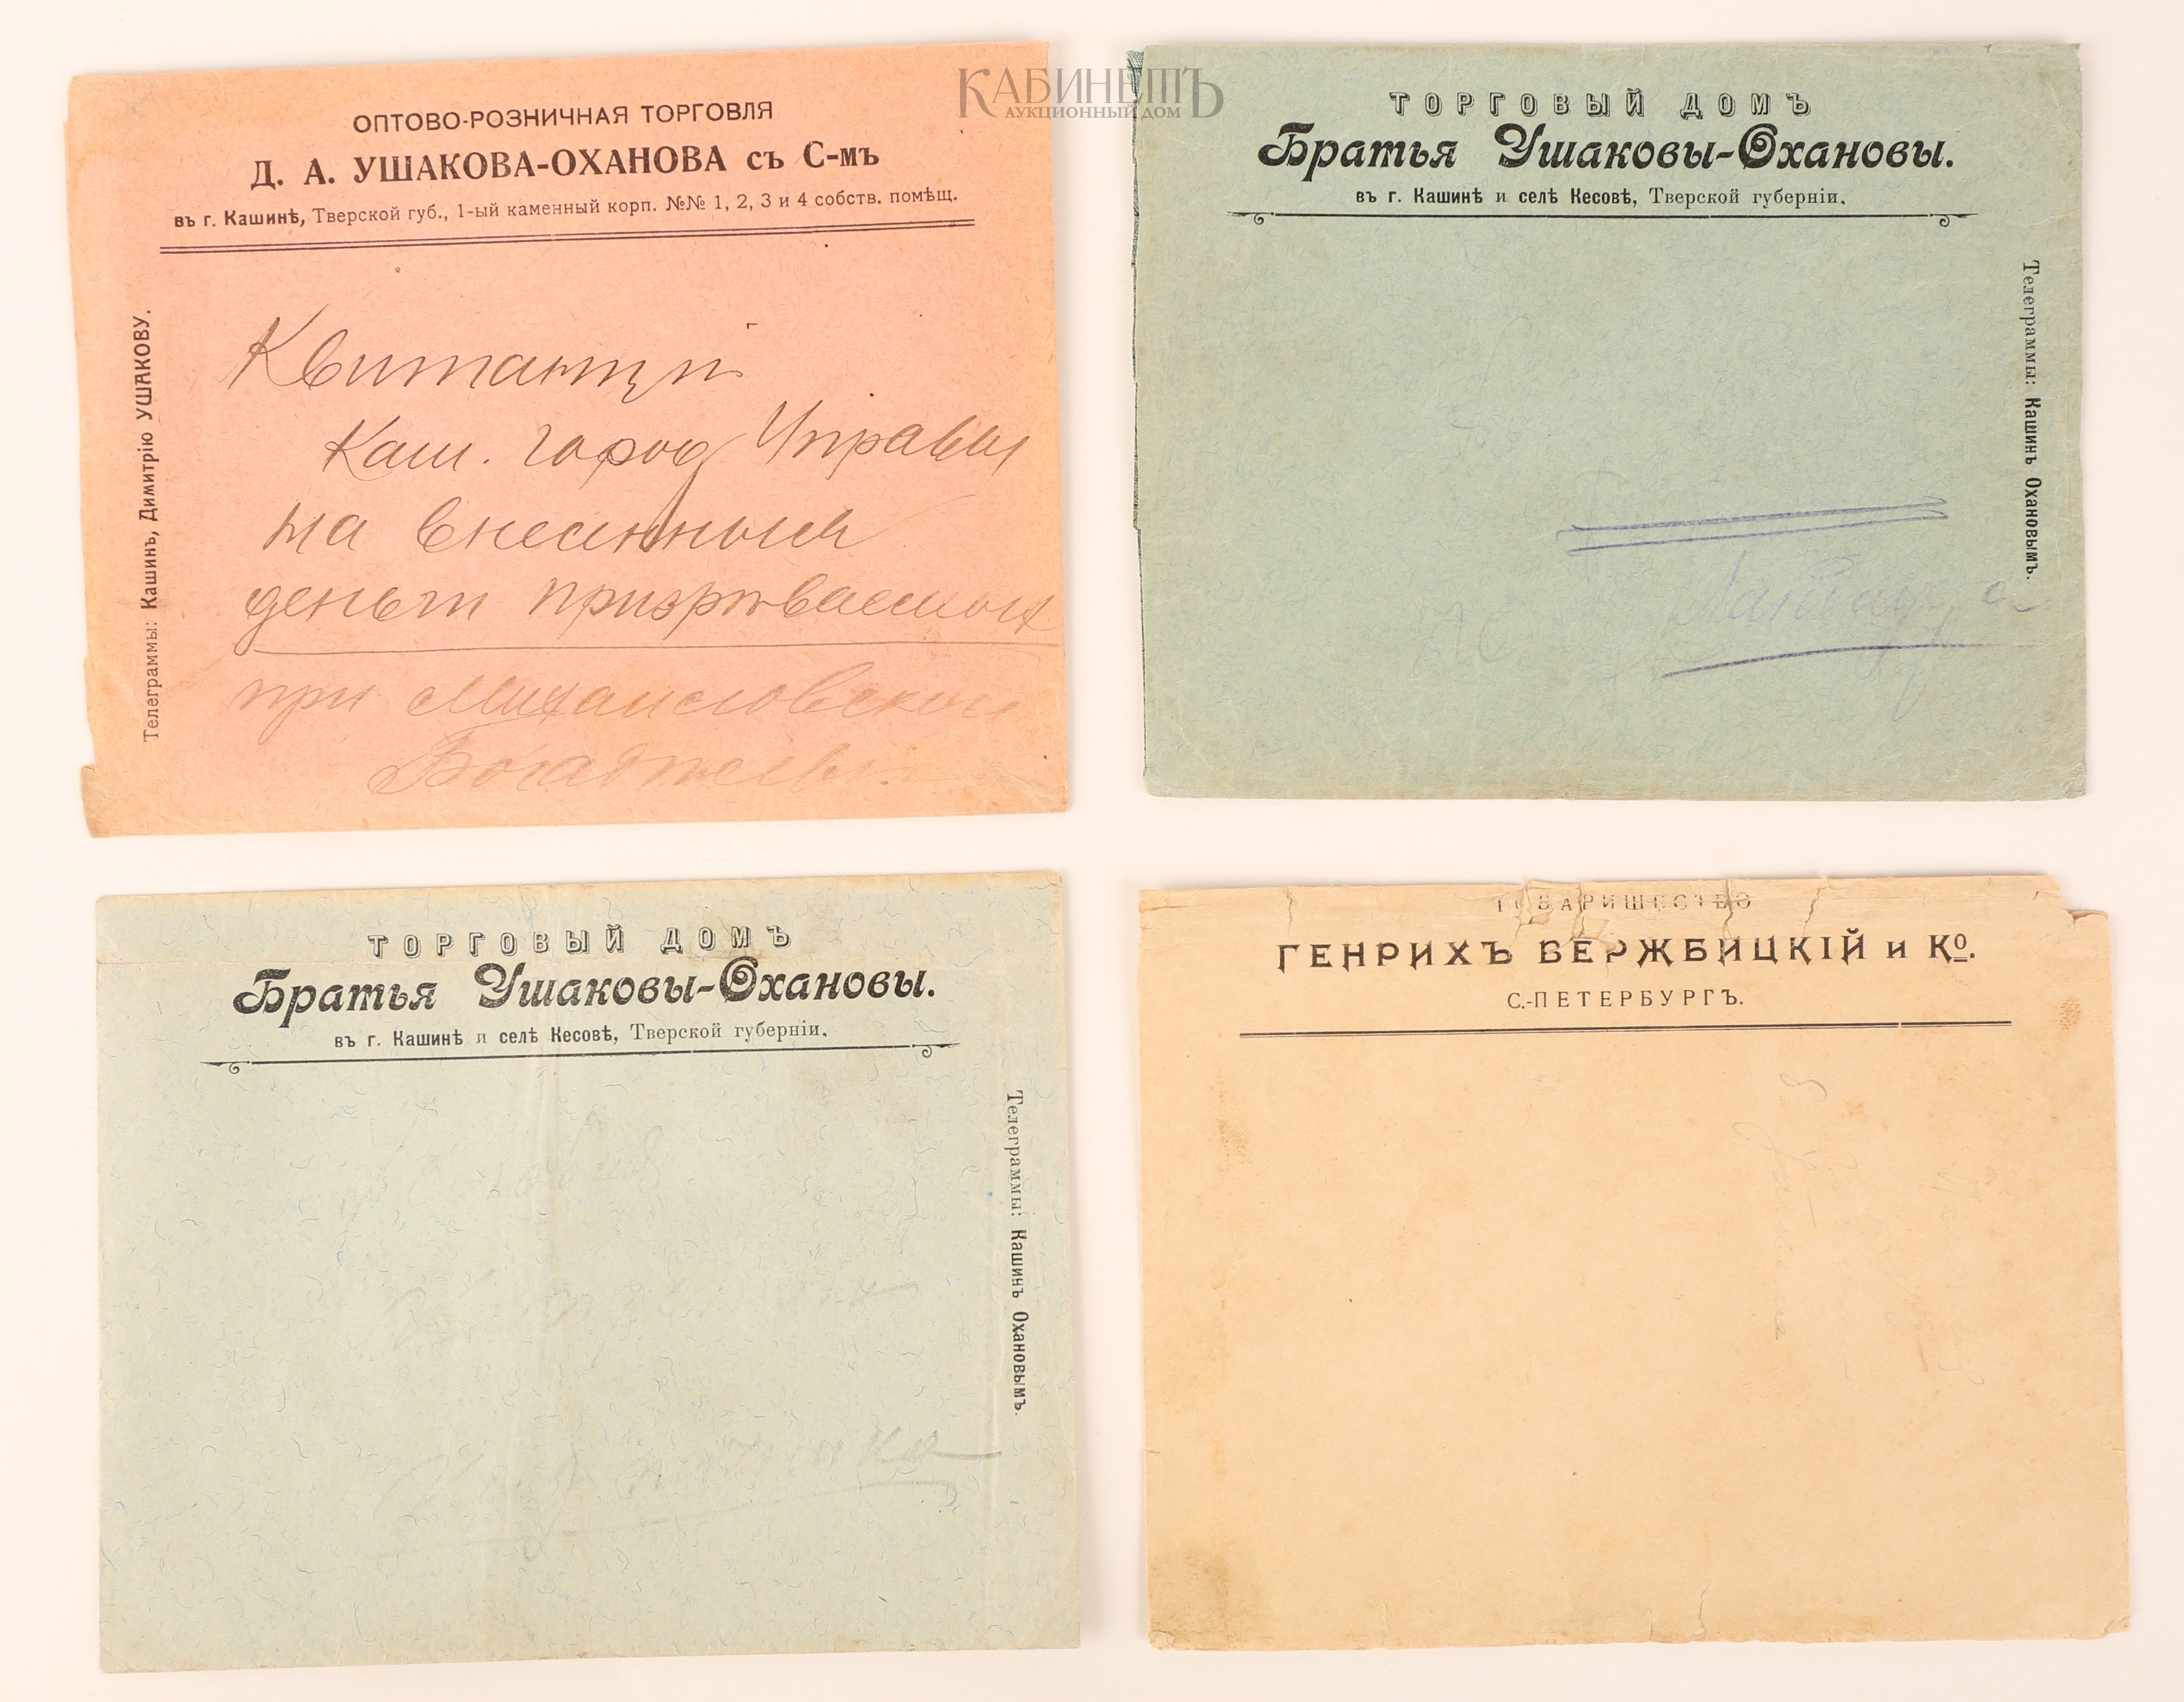 КАБИНЕТЪ
АУКЦИОННЫЙ ДОМ
ОПТОВО-РОЗНИЧНАЯ ТОРГОВЛЯ
Д. А. УШАКОВА-ОХАНОВА съ С-мъ
въ г. Кашинѣ, Тверской губ., 1-ый каменный корп. №№ 1, 2, 3 и 4 собств. помѣщ.
Телеграммы: Кашинъ, Димитрію УШАКОВУ.
Квитанціи
Каш. город Управы
на внесенныя
деньги призрѣваемых
при Михаиловской
Богадѣльн
ТОРГОВЫЙ ДОМЪ
Братья Ушаковы-Охановы.
въ г. Кашинѣ и селѣ Кесовѣ, Тверской губерніи.
Телеграммы: Кашинъ Охановымъ.
ТОРГОВЫЙ ДОМЪ
Братья Ушаковы-Охановы.
въ г. Кашинѣ и селѣ Кесовѣ, Тверской губерніи.
Телеграммы: Кашинъ Охановымъ.
ТОВАРИЩЕСТВО
ГЕНРИХЪ БЕРЖБИЦКІЙ и Ко.
С.-ПЕТЕРБУРГЪ.